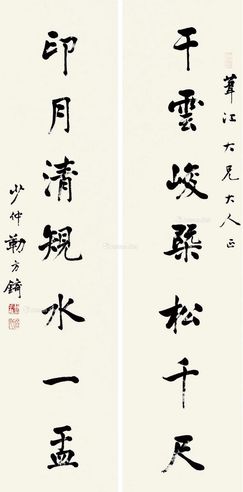 葦江大兄大人正
干雲峻槩松千尺
印月清規水一盂
少仲勒方錡